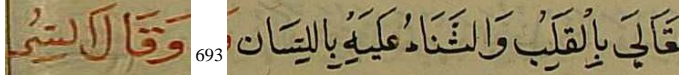 تعَالىَ بِالْقَلْبِ وَالثَّنَاءُ عَلَيْهِ بِاللِّسَان وَقَالَ السُّ
693